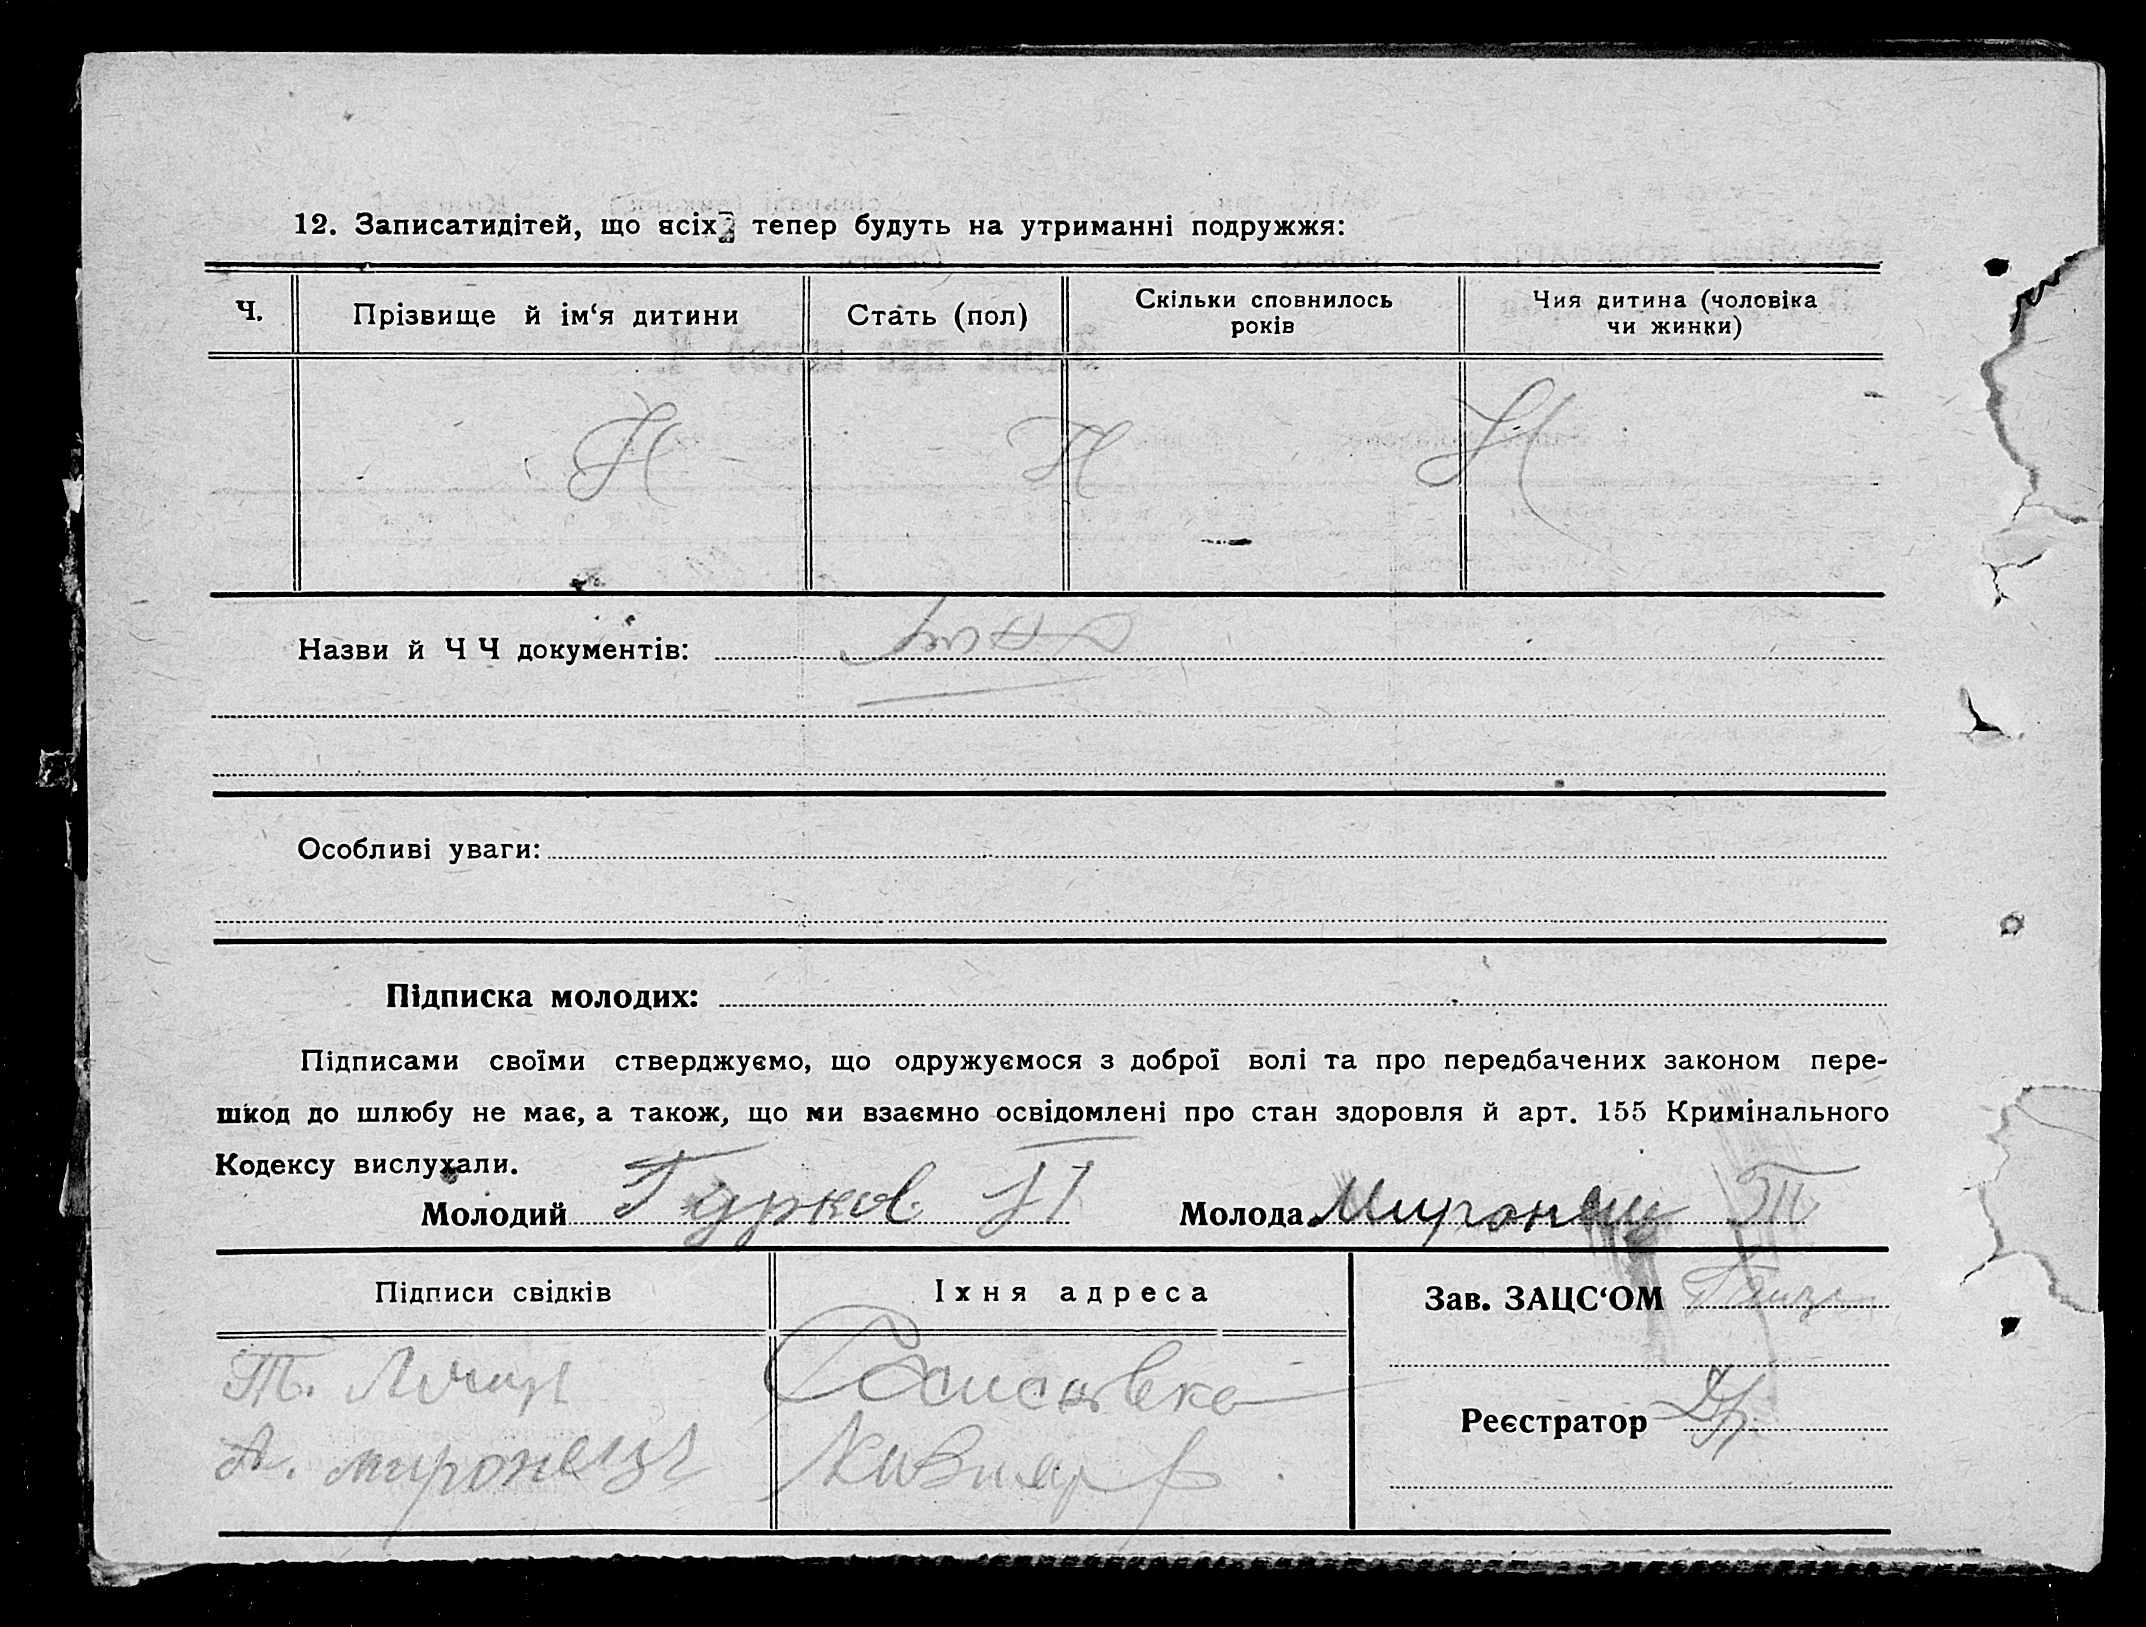 12. Записатидітей, що всіх тепер будуть на утриманні подружжя:
Ч.
Прізвище й ім‘я дитини
Стать (пол)
Скільки сповнилось
років
Чия дитина (чоловіка
чи жинки)
Н Н Н
Назви й Ч Ч документів:
Особливі уваги:
Підписка молодих:
Підписами своїми стверджуємо, що одружуємося з доброї волі та про передбачених законом пере-
шкод до шлюбу не має, а також, що ми взаємно освідомлені про стан здоровля й арт. 155 Кримінального
Кодексу вислухали.
Молодий Гурков П
Молода Миронец Т
Підписи свідків
Їхня адреса
Зав. ЗАЦС‘ОМ
Т.
А. миронец
Реєстратор